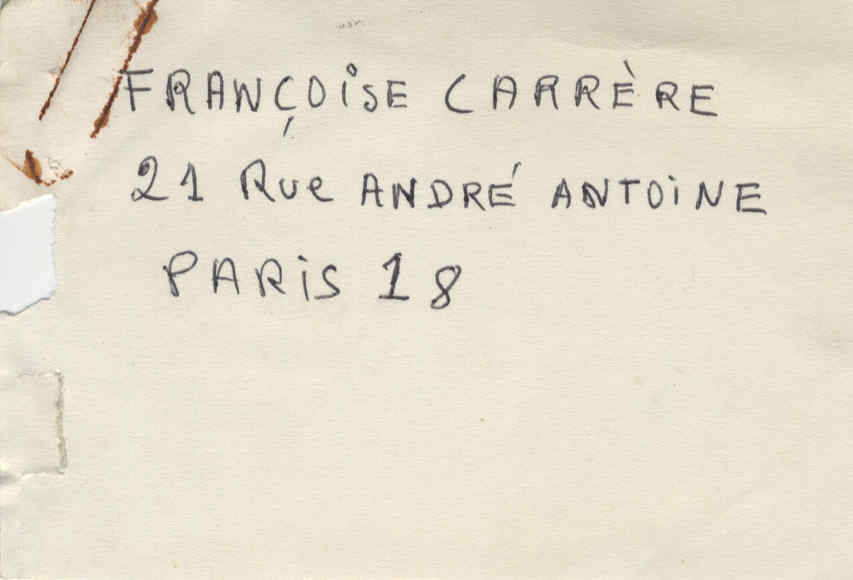 FRANÇOiSE CARRÈRE
21 Rue ANDRÉ ANTOiNE
PARiS 18